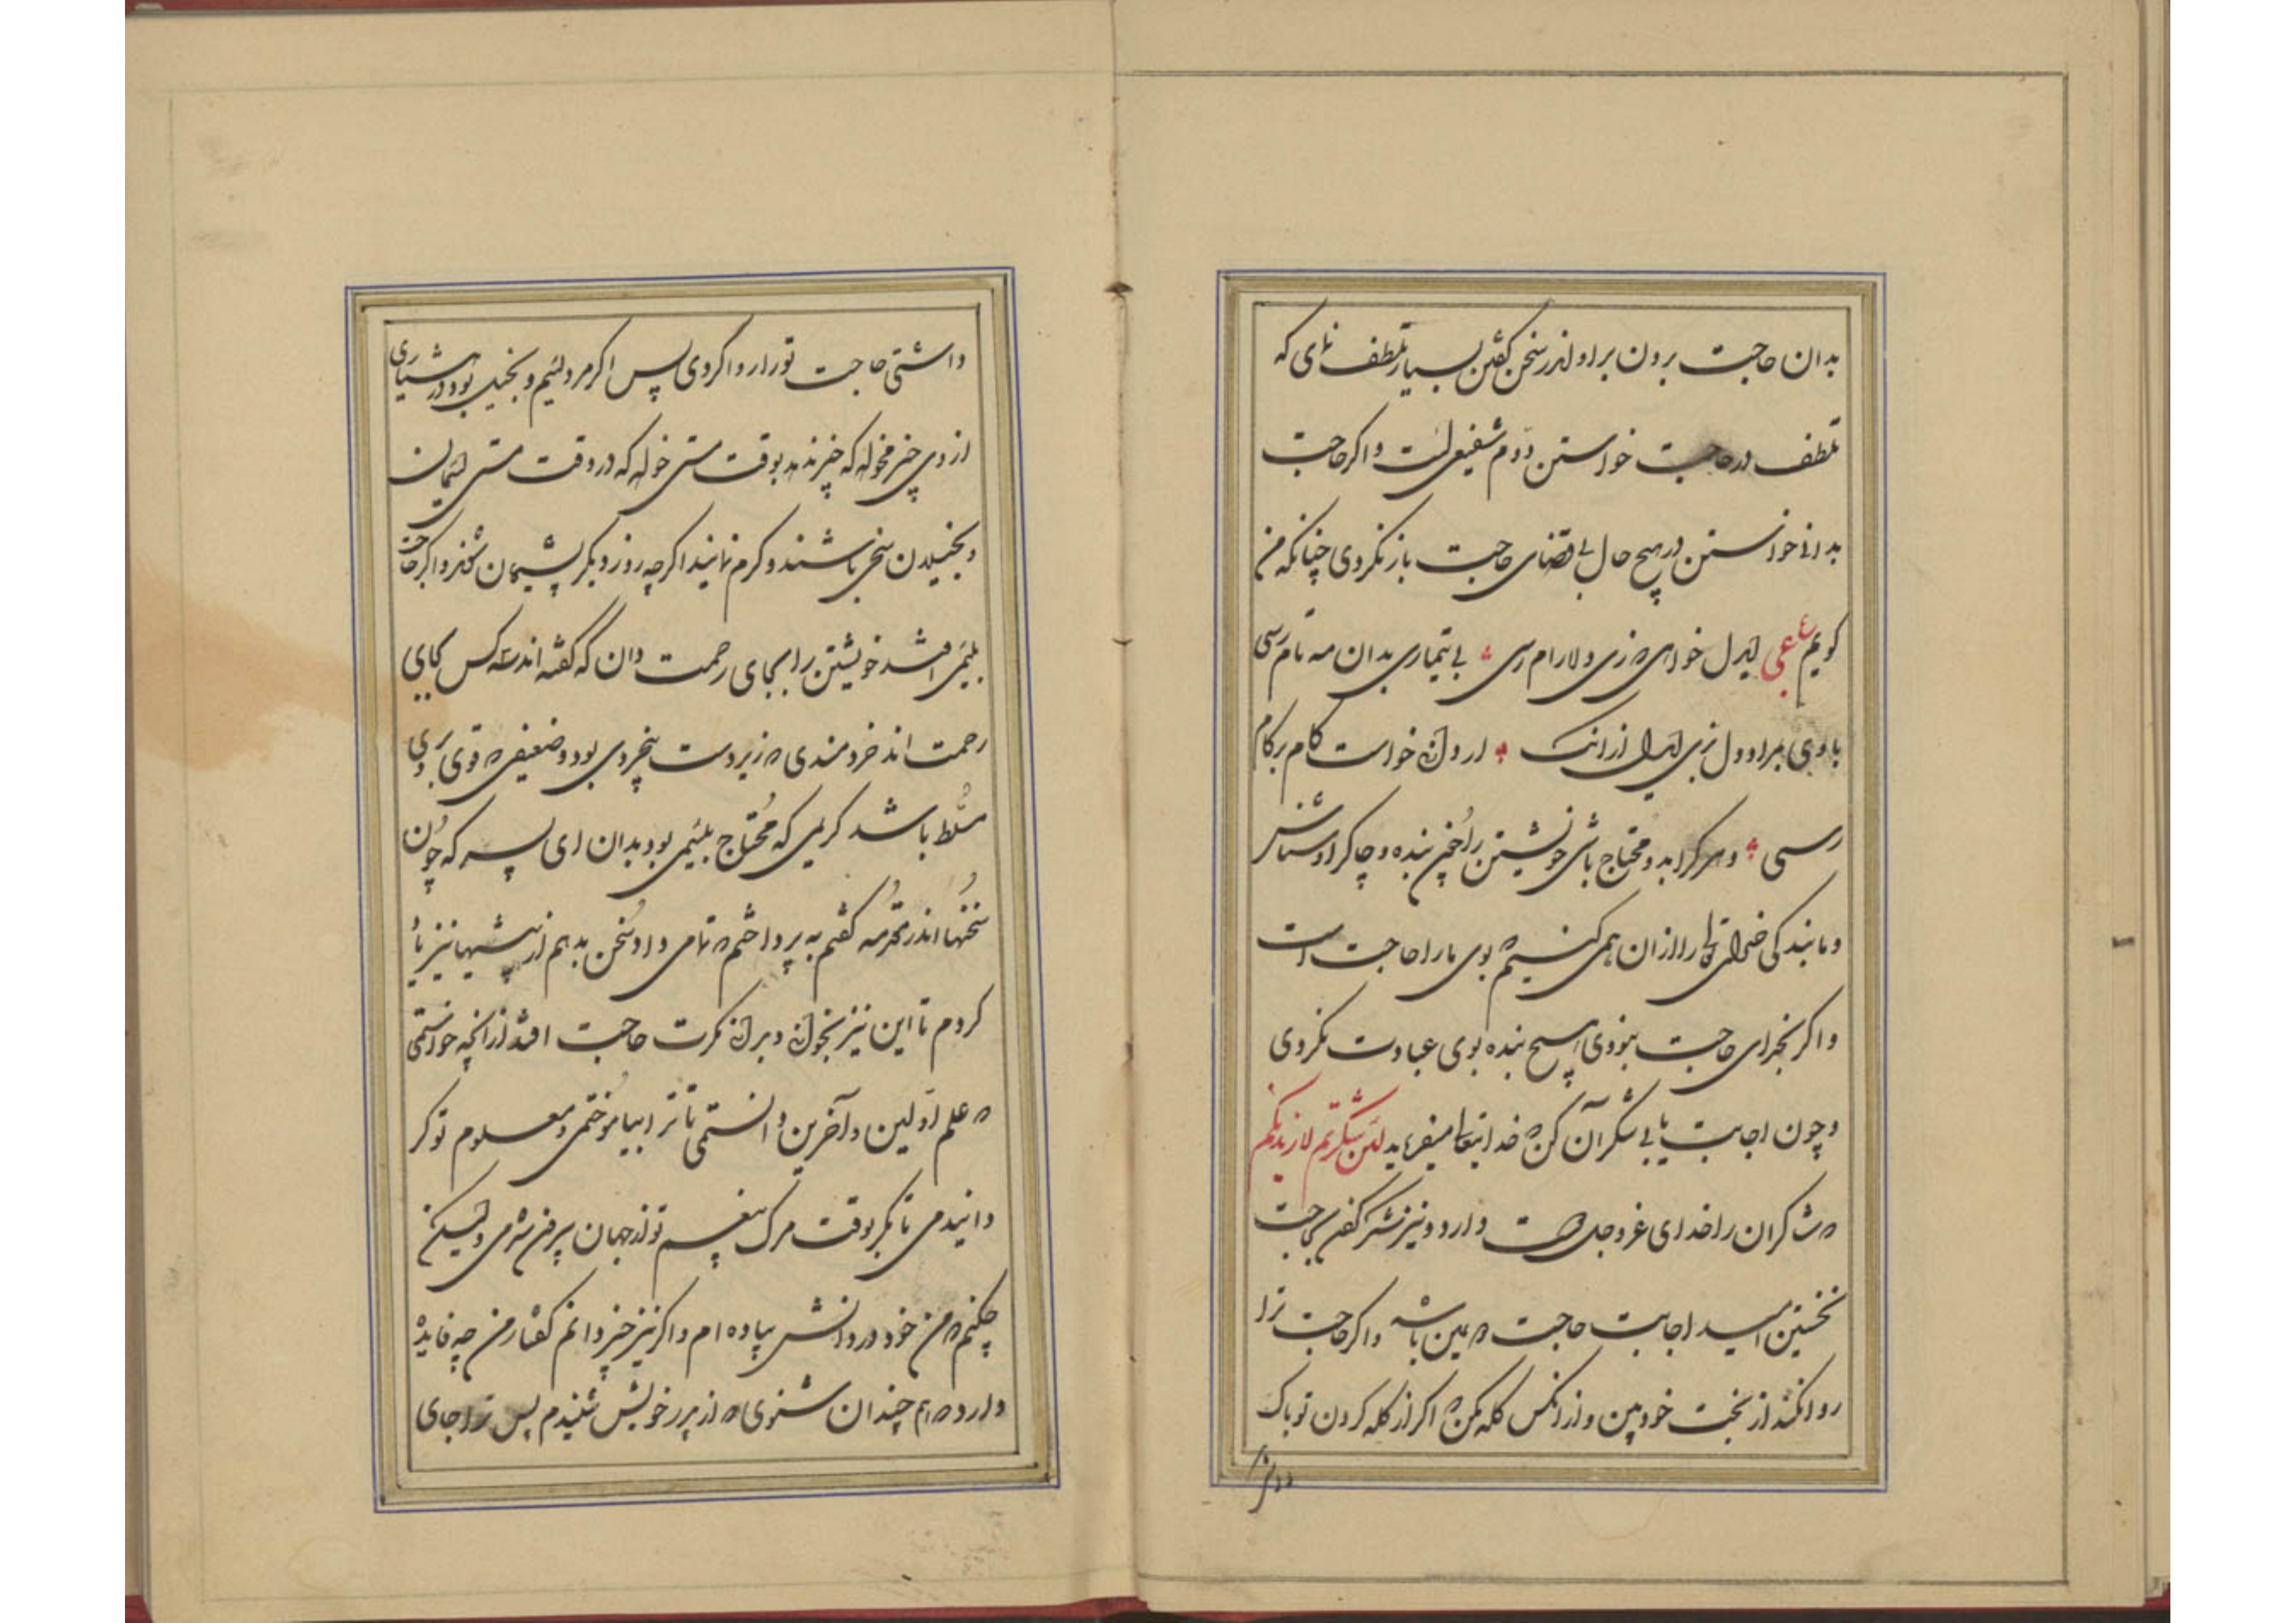 بدان حاجت برون براو اندر سخن گفتن بسیار تلطف نمای که
تلطف در حاجت خواستن دوم شفیعی است واکر حاجت
بدانی خواستن در هیچ حال بی قضای حاجت باز نکردی چنانکه من
کویم ایدل خواهی که زی دلارام رسی بی تیماری بدان مه تام رسی
باوی بمراد دل بزی ایدل ازانک ار دل خواست کام بر کام
رسی وهر کرا بدو محتاج باشی خویشتن را چون بنده وچاکر او شناس
وما بندکی خدای تعالی را ازان همی کنیم که بوی ما را حاجت است
واکر بخدای حاجت نبودی هیچ بنده بوی عبادت نکردی
وچون اجابت یابی شکر آن کن که خدایتعالی میفرماید لئن شکرتم لازیدنکم
که شاکران را خدای عزوجل دوست دارد ونیز شکر کفتن حاجت
نخستین امید اجابت حاجت دومین باشد واکر حاجت ترا
روا نکند از بخت خود بین واز انکس کله مکن که اکر از کله کردن تو باک
داشتی حاجت تو را روا کردی پس اکر مرد لئیم وبخیل بود در هشیاری
از وی چیز مخواه که چیز ندهد بوقت مستی خواه که در وقت مستی لئیمان
وبخیلان سخی باشند وکرم نمایند اکرچه روز دیکر پشیمان شوند واکر حاجت
بلئیمی افتد خویشتن را بجای رحمت دان که کفته اند سه کس بجای
رحمت اند خردمندی که زیر دست بیخردی بود وضعیفی که قوی بر وی
مسلط باشد کریمی که محتاج بلئیمی بود بدان ای پسر که چون
سخنها اندر مقدمه کفتم به پرداختم که تمامی داد سخن بدهم از پیشیها نیز یاد
کردم تا این نیز بخوانی وبرانی کرت حاجت افتد ازانچه خواستمی
که علم اولین وآخرین دانستمی تا ترا بیاموختمی ومعلوم تو کر
دانیدمی تا بکر بوقت مرک بیغم تو از جهان بیرون شدمی ولیکن
چکنم که من خود در دانش پیاده ام واکر نیز چیز دانم کفتار من چه فایده
دارد که هم چندان شنوی که از پدر خویش شنیدم پس ترا جای